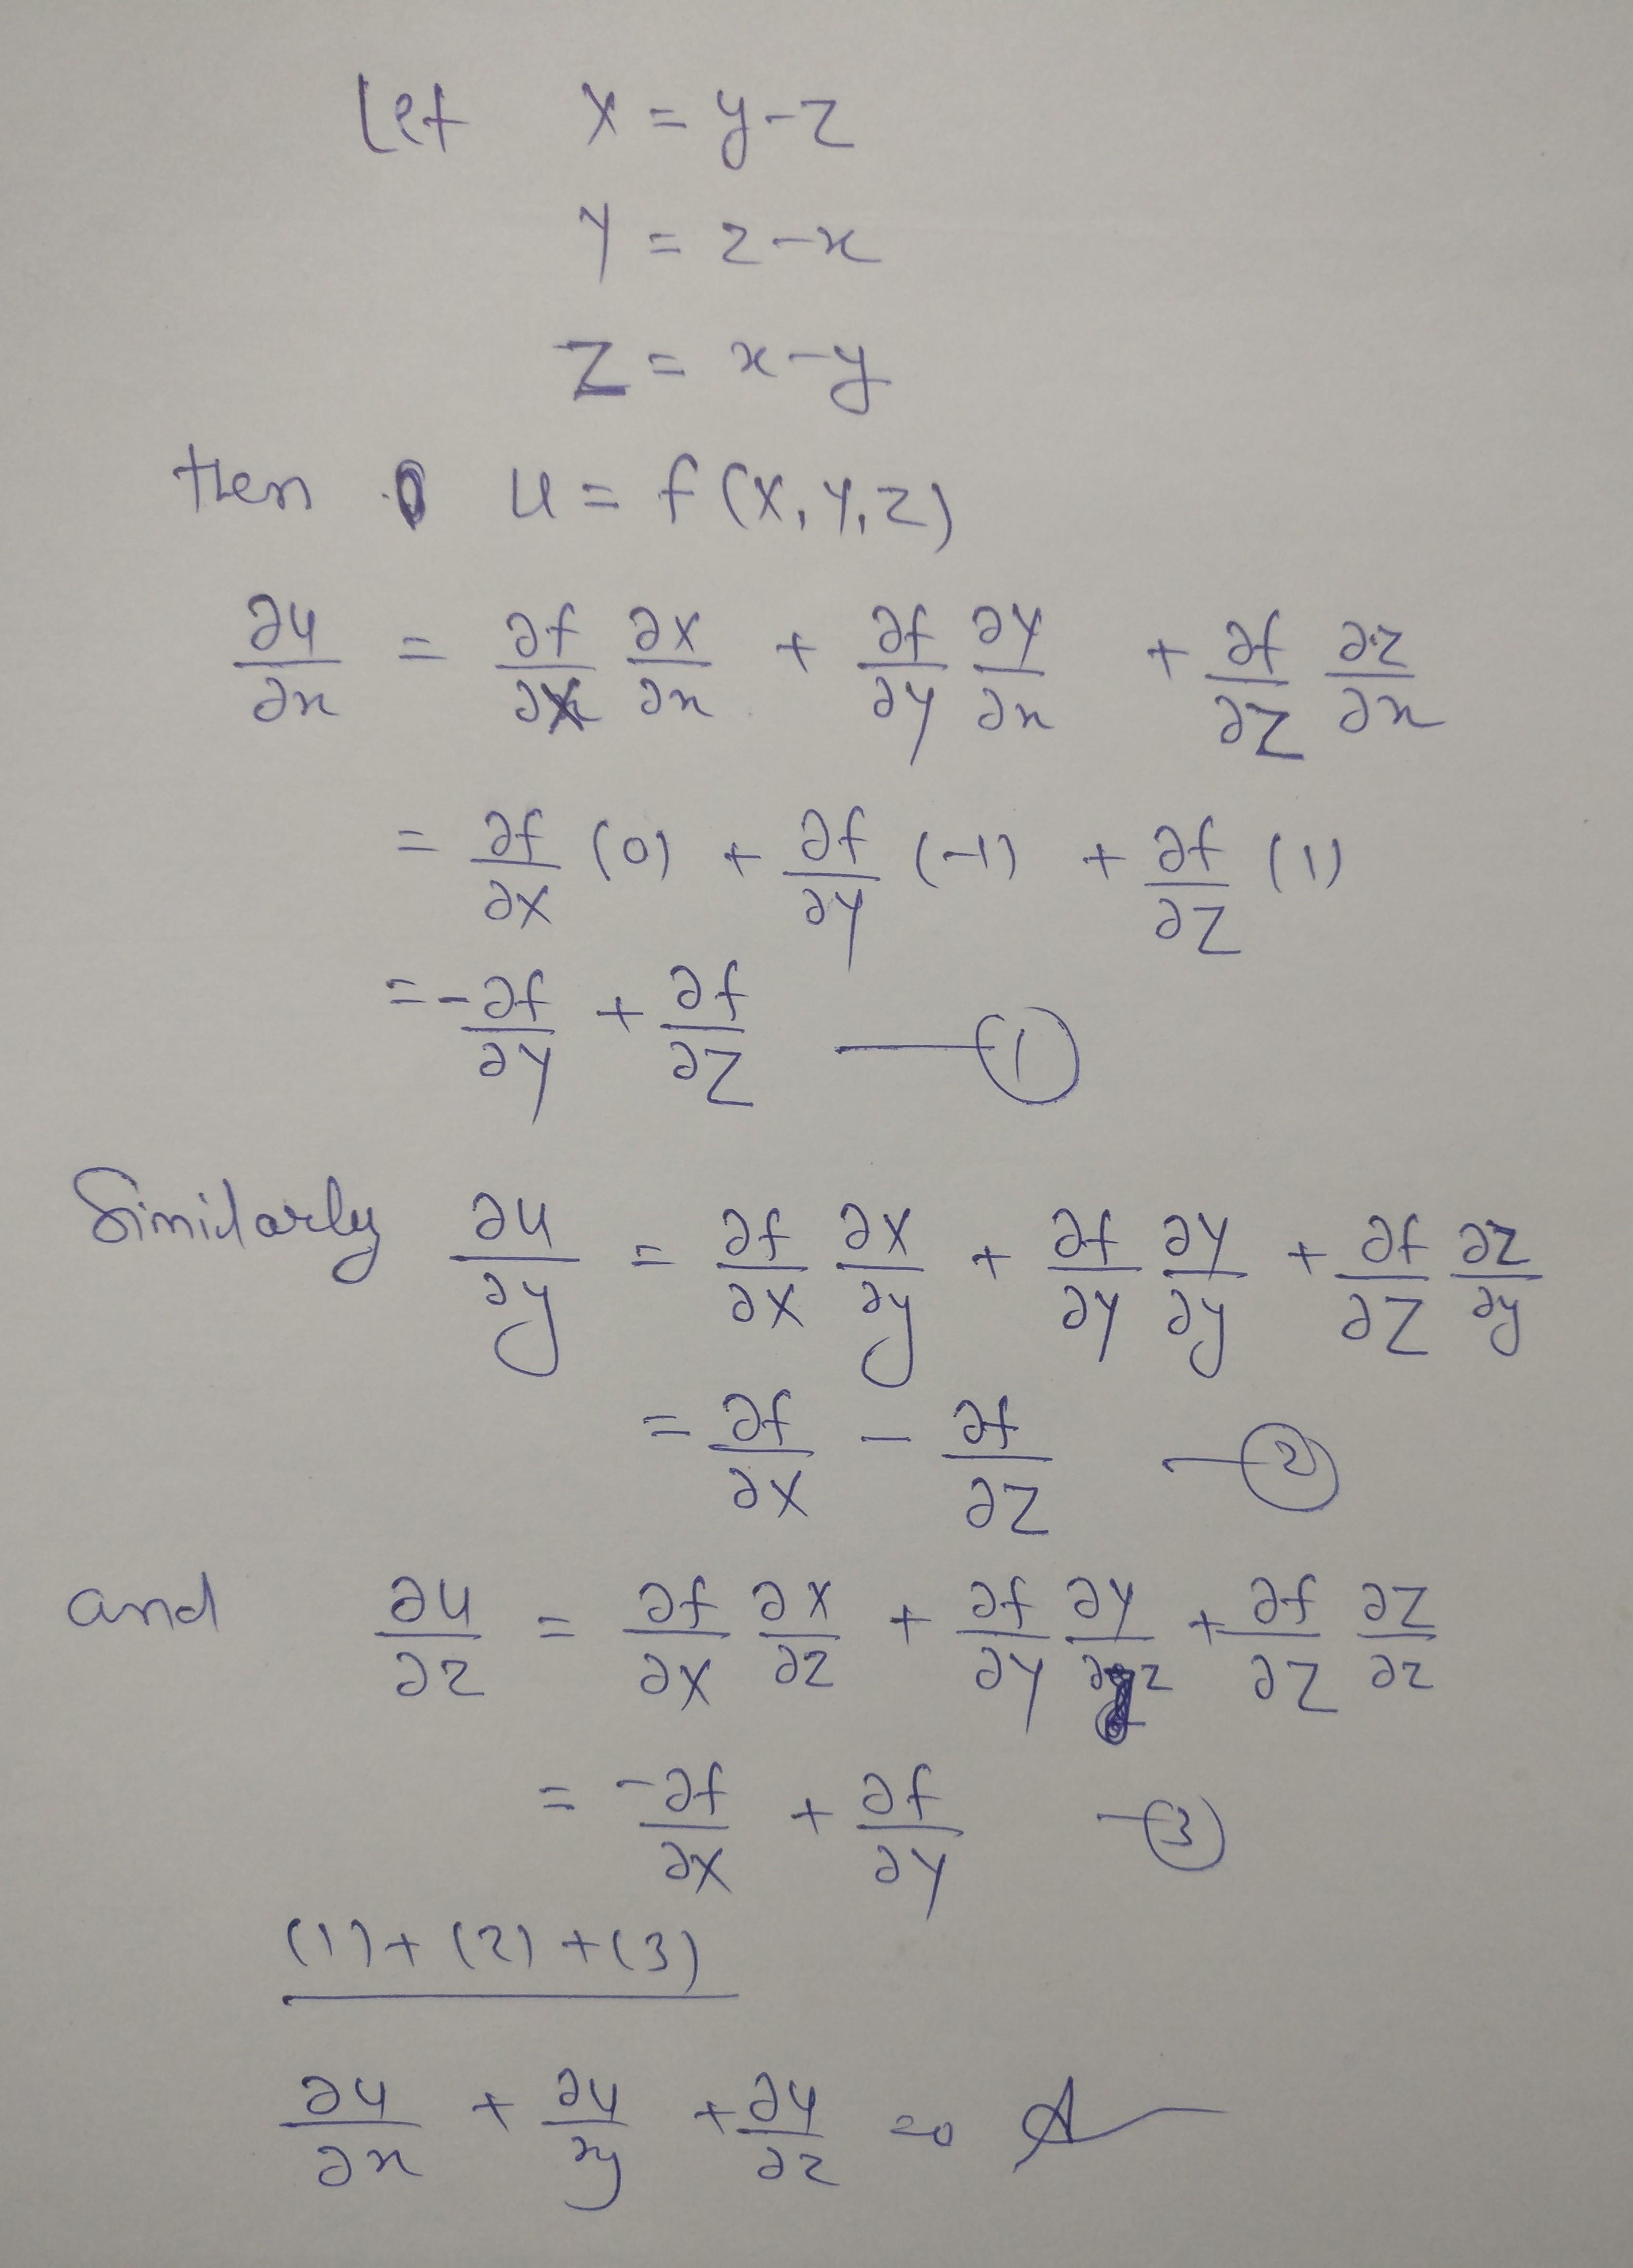 Let X = y-z
Y = z-x
Z = x-y
then u = f(X, Y, Z)
∂u/∂x = ∂f/∂X ∂X/∂x + ∂f/∂Y ∂Y/∂x + ∂f/∂Z ∂Z/∂x
= ∂f/∂X (0) + ∂f/∂Y (-1) + ∂f/∂Z (1)
= -∂f/∂Y + ∂f/∂Z — ①
Similarly ∂u/∂y = ∂f/∂X ∂X/∂y + ∂f/∂Y ∂Y/∂y + ∂f/∂Z ∂Z/∂y
= ∂f/∂X - ∂f/∂Z — ②
and ∂u/∂z = ∂f/∂X ∂X/∂z + ∂f/∂Y ∂Y/∂z + ∂f/∂Z ∂Z/∂z
= -∂f/∂X + ∂f/∂Y — ③
(1) + (2) + (3)
∂u/∂x + ∂u/∂y + ∂u/∂z = 0